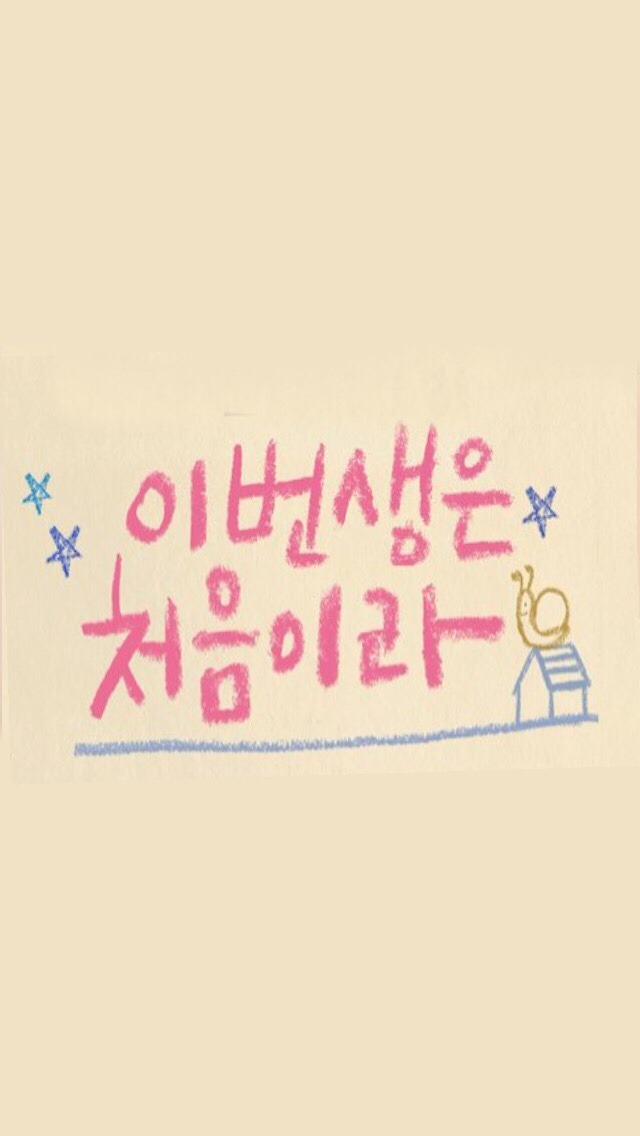 이번생은
처음이라